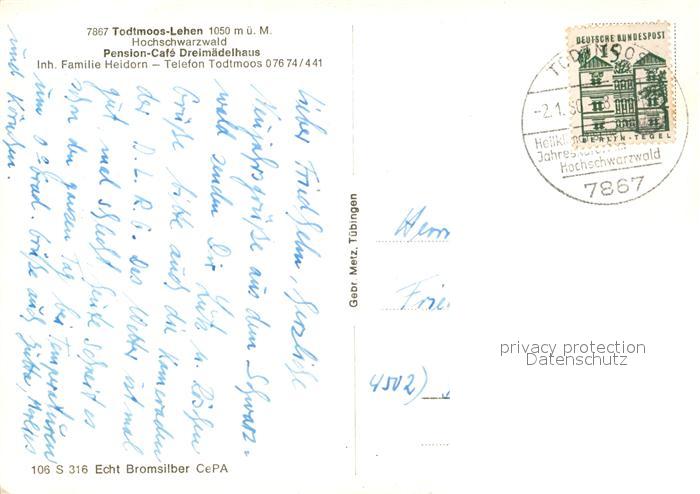 7867 Todtmoos-Lehen 1050 m ü. M.
Hochschwarzwald
Pension-Café Dreimädelhaus
Inh. Familie Heidorn — Telefon Todtmoos 07674/441
Lieber Friedhelm, herzliche
Neujahrsgrüße aus dem Schwarz-
wald senden Dir Lutz u.
Grüße bitte auch die Kameraden
der D.L.R.G. Das Wetter ist mal
gut, mal schlecht heute schneit es
schon den ganzen Tag bei Temperaturen
um 0° Grad. Grüße auch Jutta,
und
Gebr. Metz, Tübingen
DEUTSCHE BUNDESPOST
15
BERLIN-TEGEL
TODTMOOS
-2.1.
Hochschwarzwald
7867
Herrn
Frie
4502)
privacy protection
Datenschutz
106 S 316 Echt Bromsilber CePA